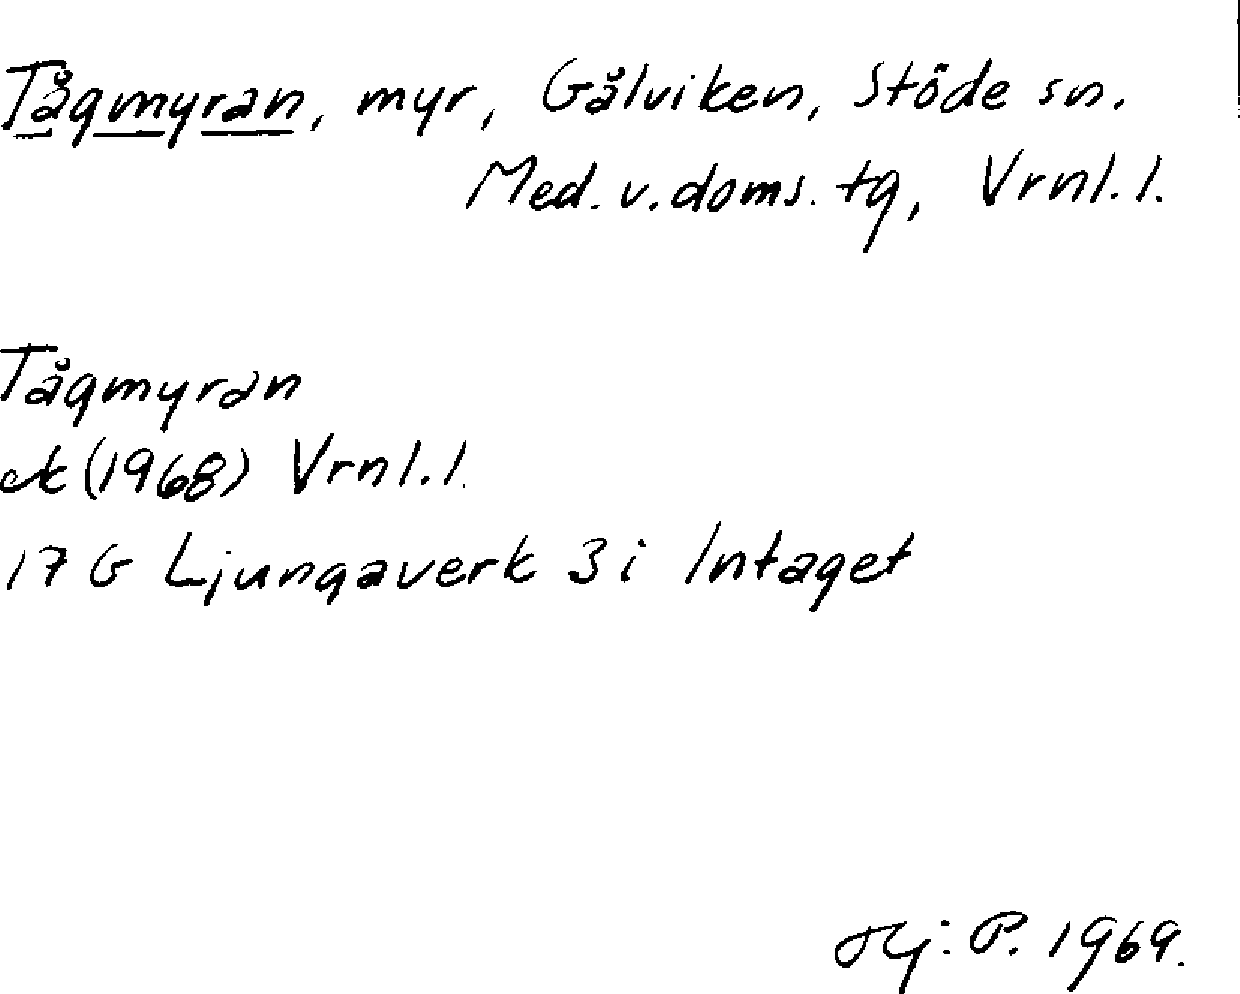 Tågmyran, myr, Gålviken, Stöde sn.
Med. v. doms. tg, Vrnl. l.
Tågmyran
ek (1968) Vrnl. l.
17 G Ljungaverk 3 i Intaget
Hj: P. 1969.